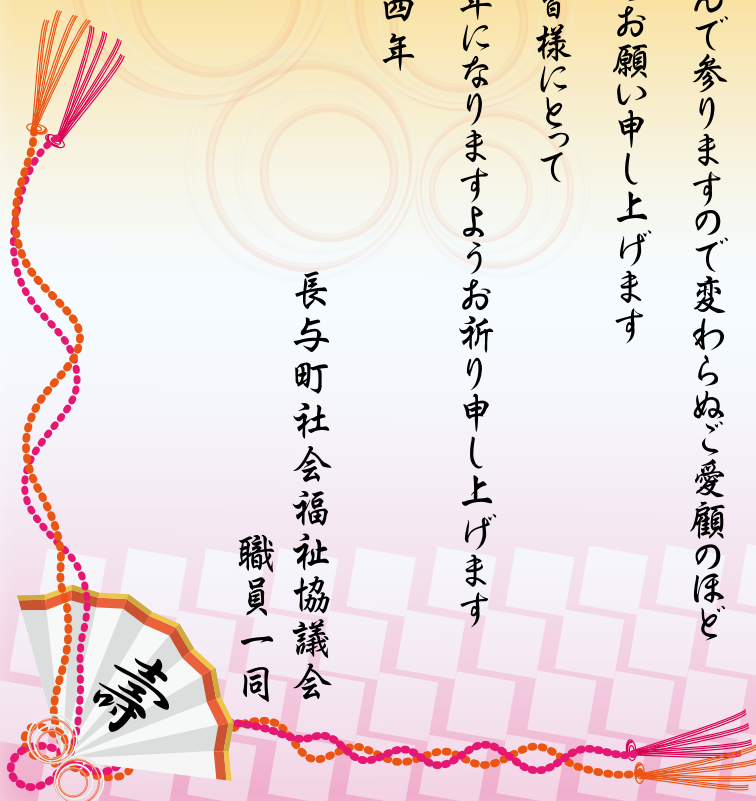 んで参りますので変わらぬご愛顧のほど
お願い申し上げます
皆様にとって
年になりますようお祈り申し上げます
四年
長与町社会福祉協議会
職員一同
壽